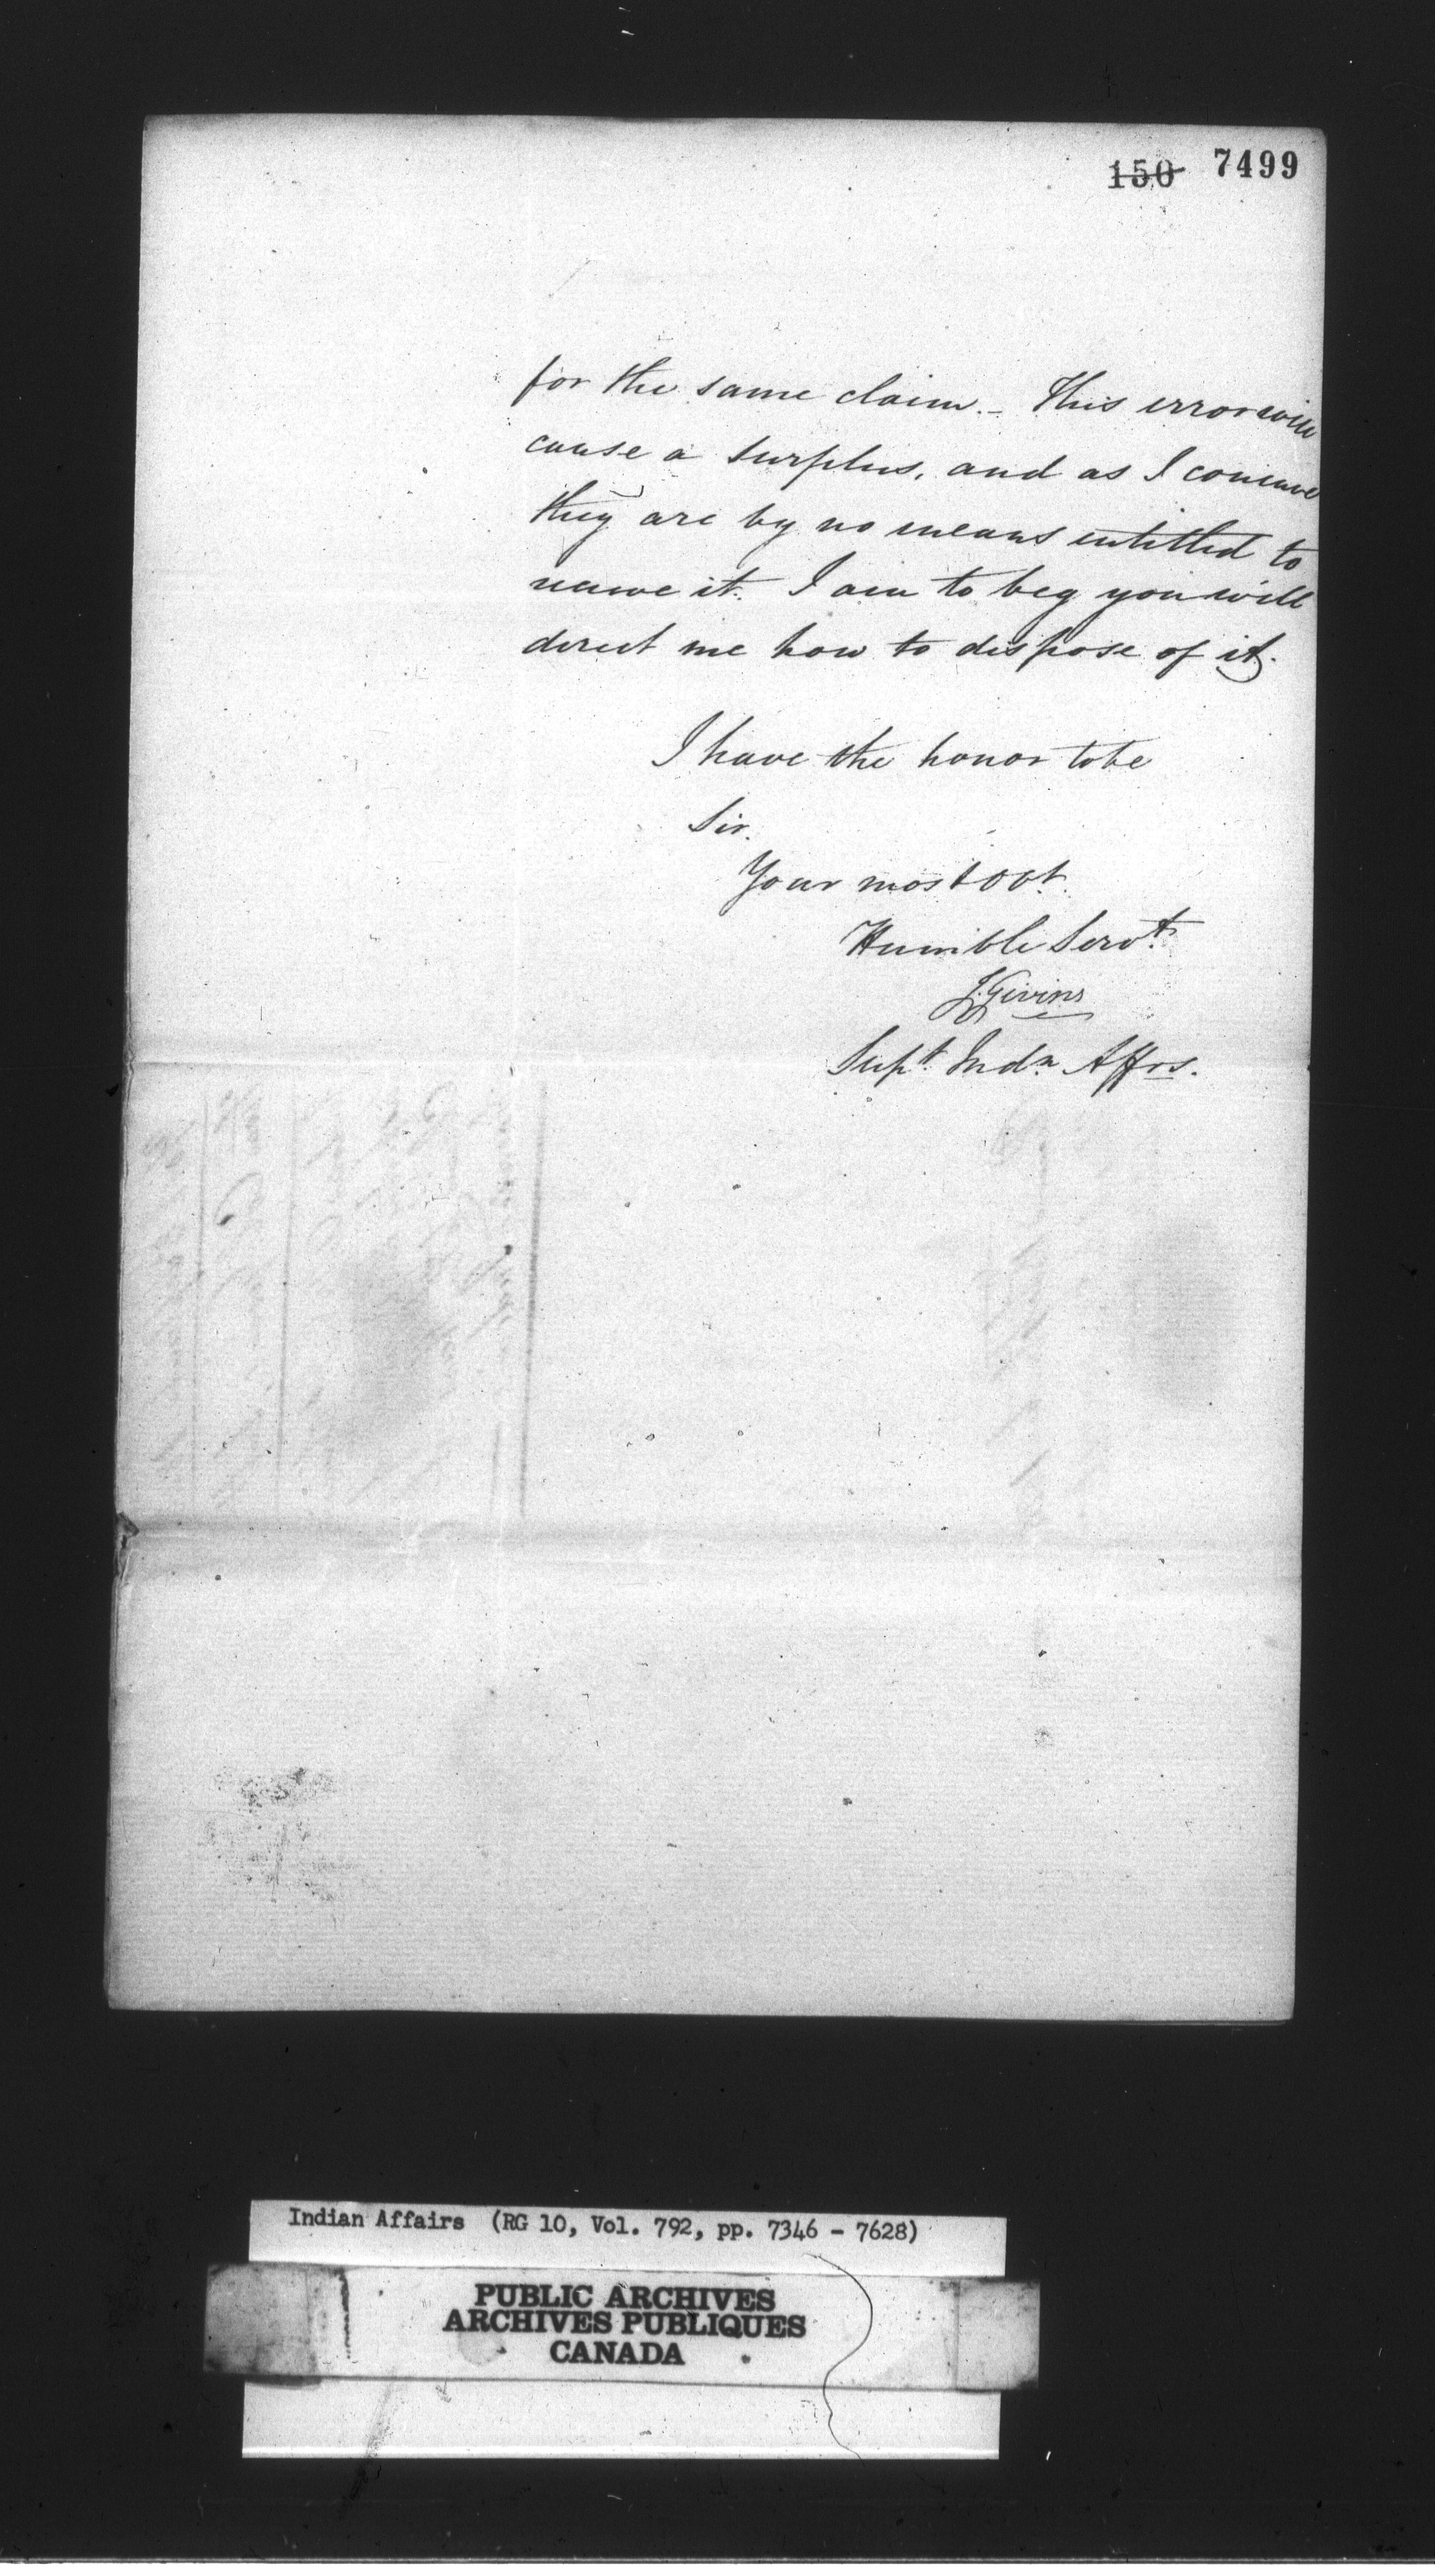 150 7499
for the same claim. – This error will
cause a surplus, and as I conceive
they are by no means intitled to
receive it. I am to beg you will
direct me how to dispose of it.
I have the honor to be
Sir.
Your most Obt.
Humble Servt.
J. Givins
Supt. Indn Affrs.
Indian Affairs (RG 10, Vol. 792, pp. 7346 - 7628)
PUBLIC ARCHIVES
ARCHIVES PUBLIQUES
CANADA